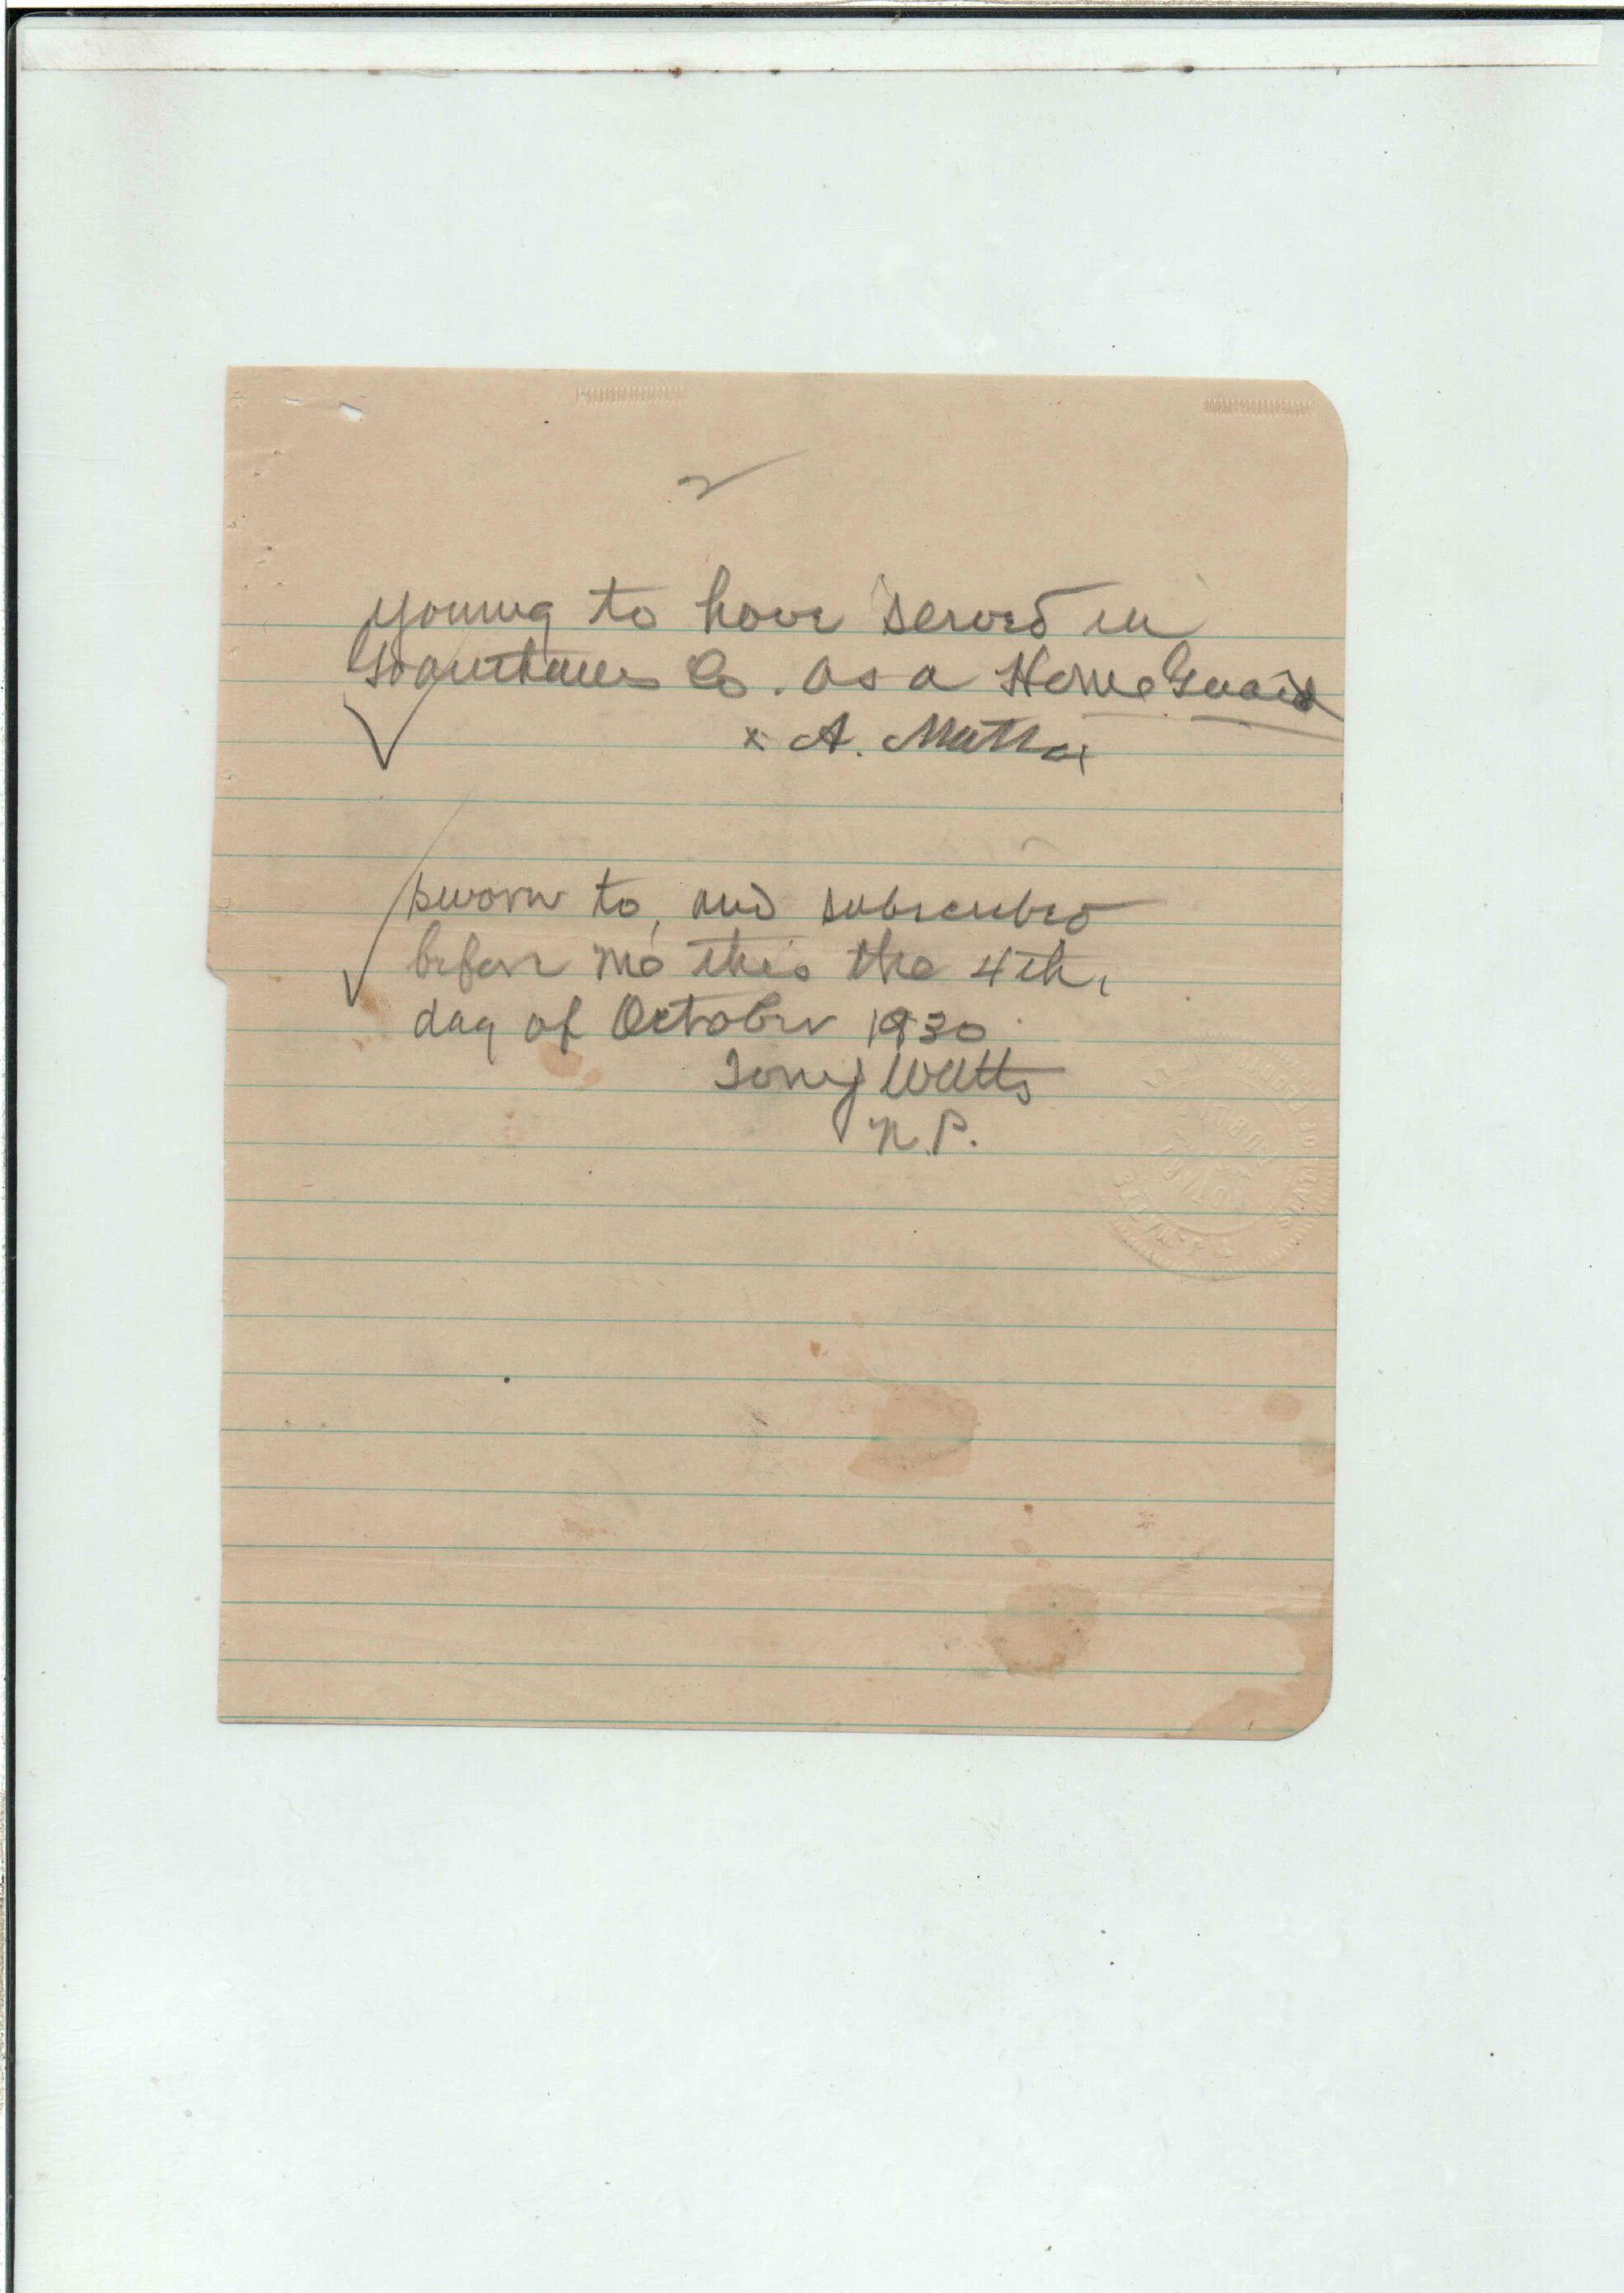 2
young to have served in
Co. as a Home Guard
x A. Mattox
sworn to, and subscribed
before me this the 4th,
day of October 1930
Tony Watts
N.P.
NOTARY
PUBLIC